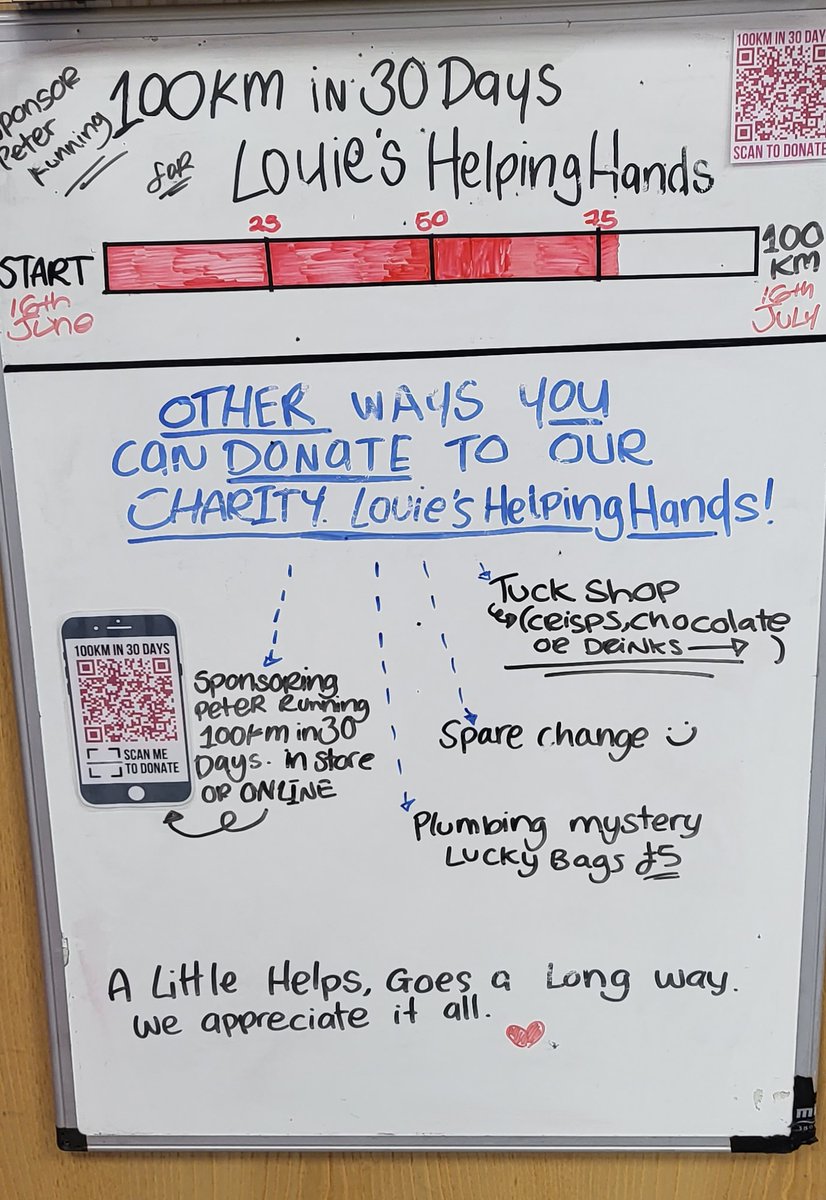 Sponsor
Peter
Running
100km in 30 Days
for
Louie's Helping Hands
100KM IN 30 DAY
SCAN TO DONATE
25
50
75
START
16th
June
100
KM
16th
July
OTHER WAYS YOU
CAN DONATE TO OUR
CHARITY. Louie's Helping Hands!
Tuck Shop
(crisps, chocolate
or Drinks → )
100KM IN 30 DAYS
SCAN ME
TO DONATE
Sponsoring
Peter Running
100km in 30
Days. in store
OR ONLINE
Spare change
Plumbing mystery
Lucky Bags £5
A Little Helps, Goes a Long way.
We appreciate it all.